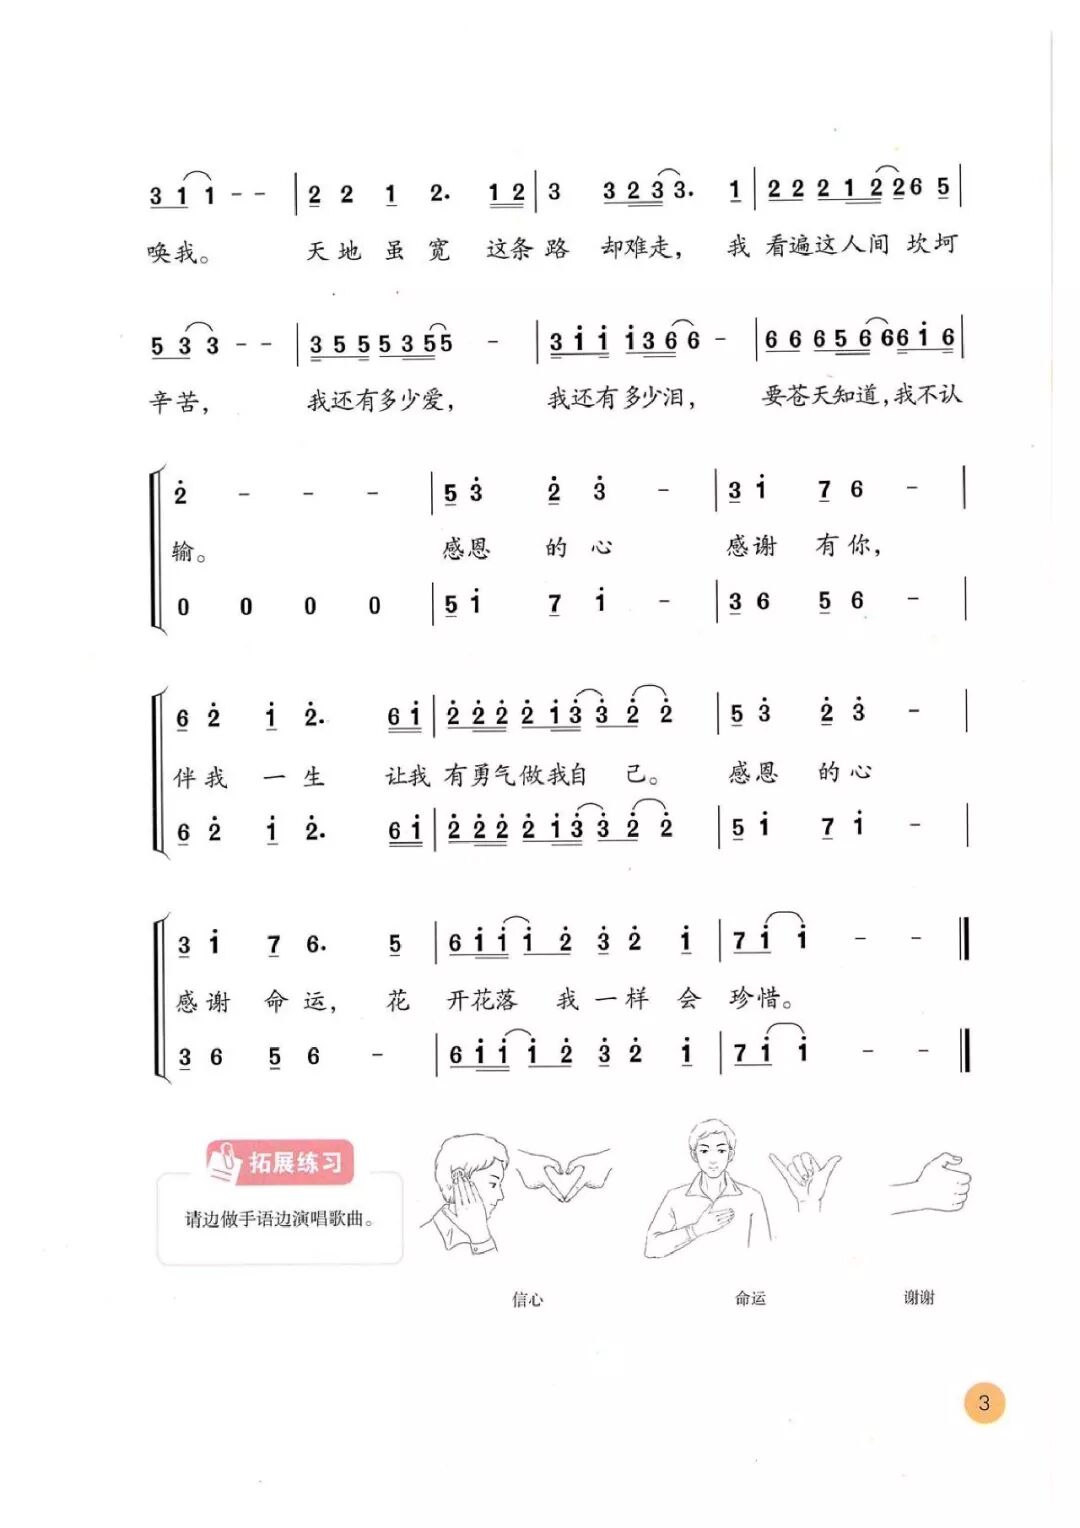 3 1 1 - - | 2 2 1 2. 1 2 | 3 3 2 3 3. 1 | 2 2 2 1 2 2 6 5 |
唤我。 天地虽宽 这条路 却难走， 我 看遍这人间 坎坷
5 3 3 - - | 3 5 5 5 3 5 5 - | 3 1 1 1 3 6 6 - | 6 6 6 5 6 6 6 1 6 |
辛苦， 我还有多少爱， 我还有多少泪， 要苍天知道，我不认
2 - - - | 5 3 2 3 - | 3 1 7 6 - |
输。 感恩 的心 感谢 有你，
0 0 0 0 | 5 1 7 1 - | 3 6 5 6 - |
6 2 1 2. 6 1 | 2 2 2 2 1 3 3 2 2 | 5 3 2 3 - |
伴我 一生 让我 有勇气做我自 己。 感恩 的心
6 2 1 2. 6 1 | 2 2 2 2 1 3 3 2 2 | 5 1 7 1 - |
3 1 7 6. 5 | 6 1 1 1 2 3 2 1 | 7 1 1 - - ‖
感谢 命运， 花 开花落 我一样会 珍惜。
3 6 5 6 - | 6 1 1 1 2 3 2 1 | 7 1 1 - - ‖
拓展练习
请边做手语边演唱歌曲。
信心 命运 谢谢
3